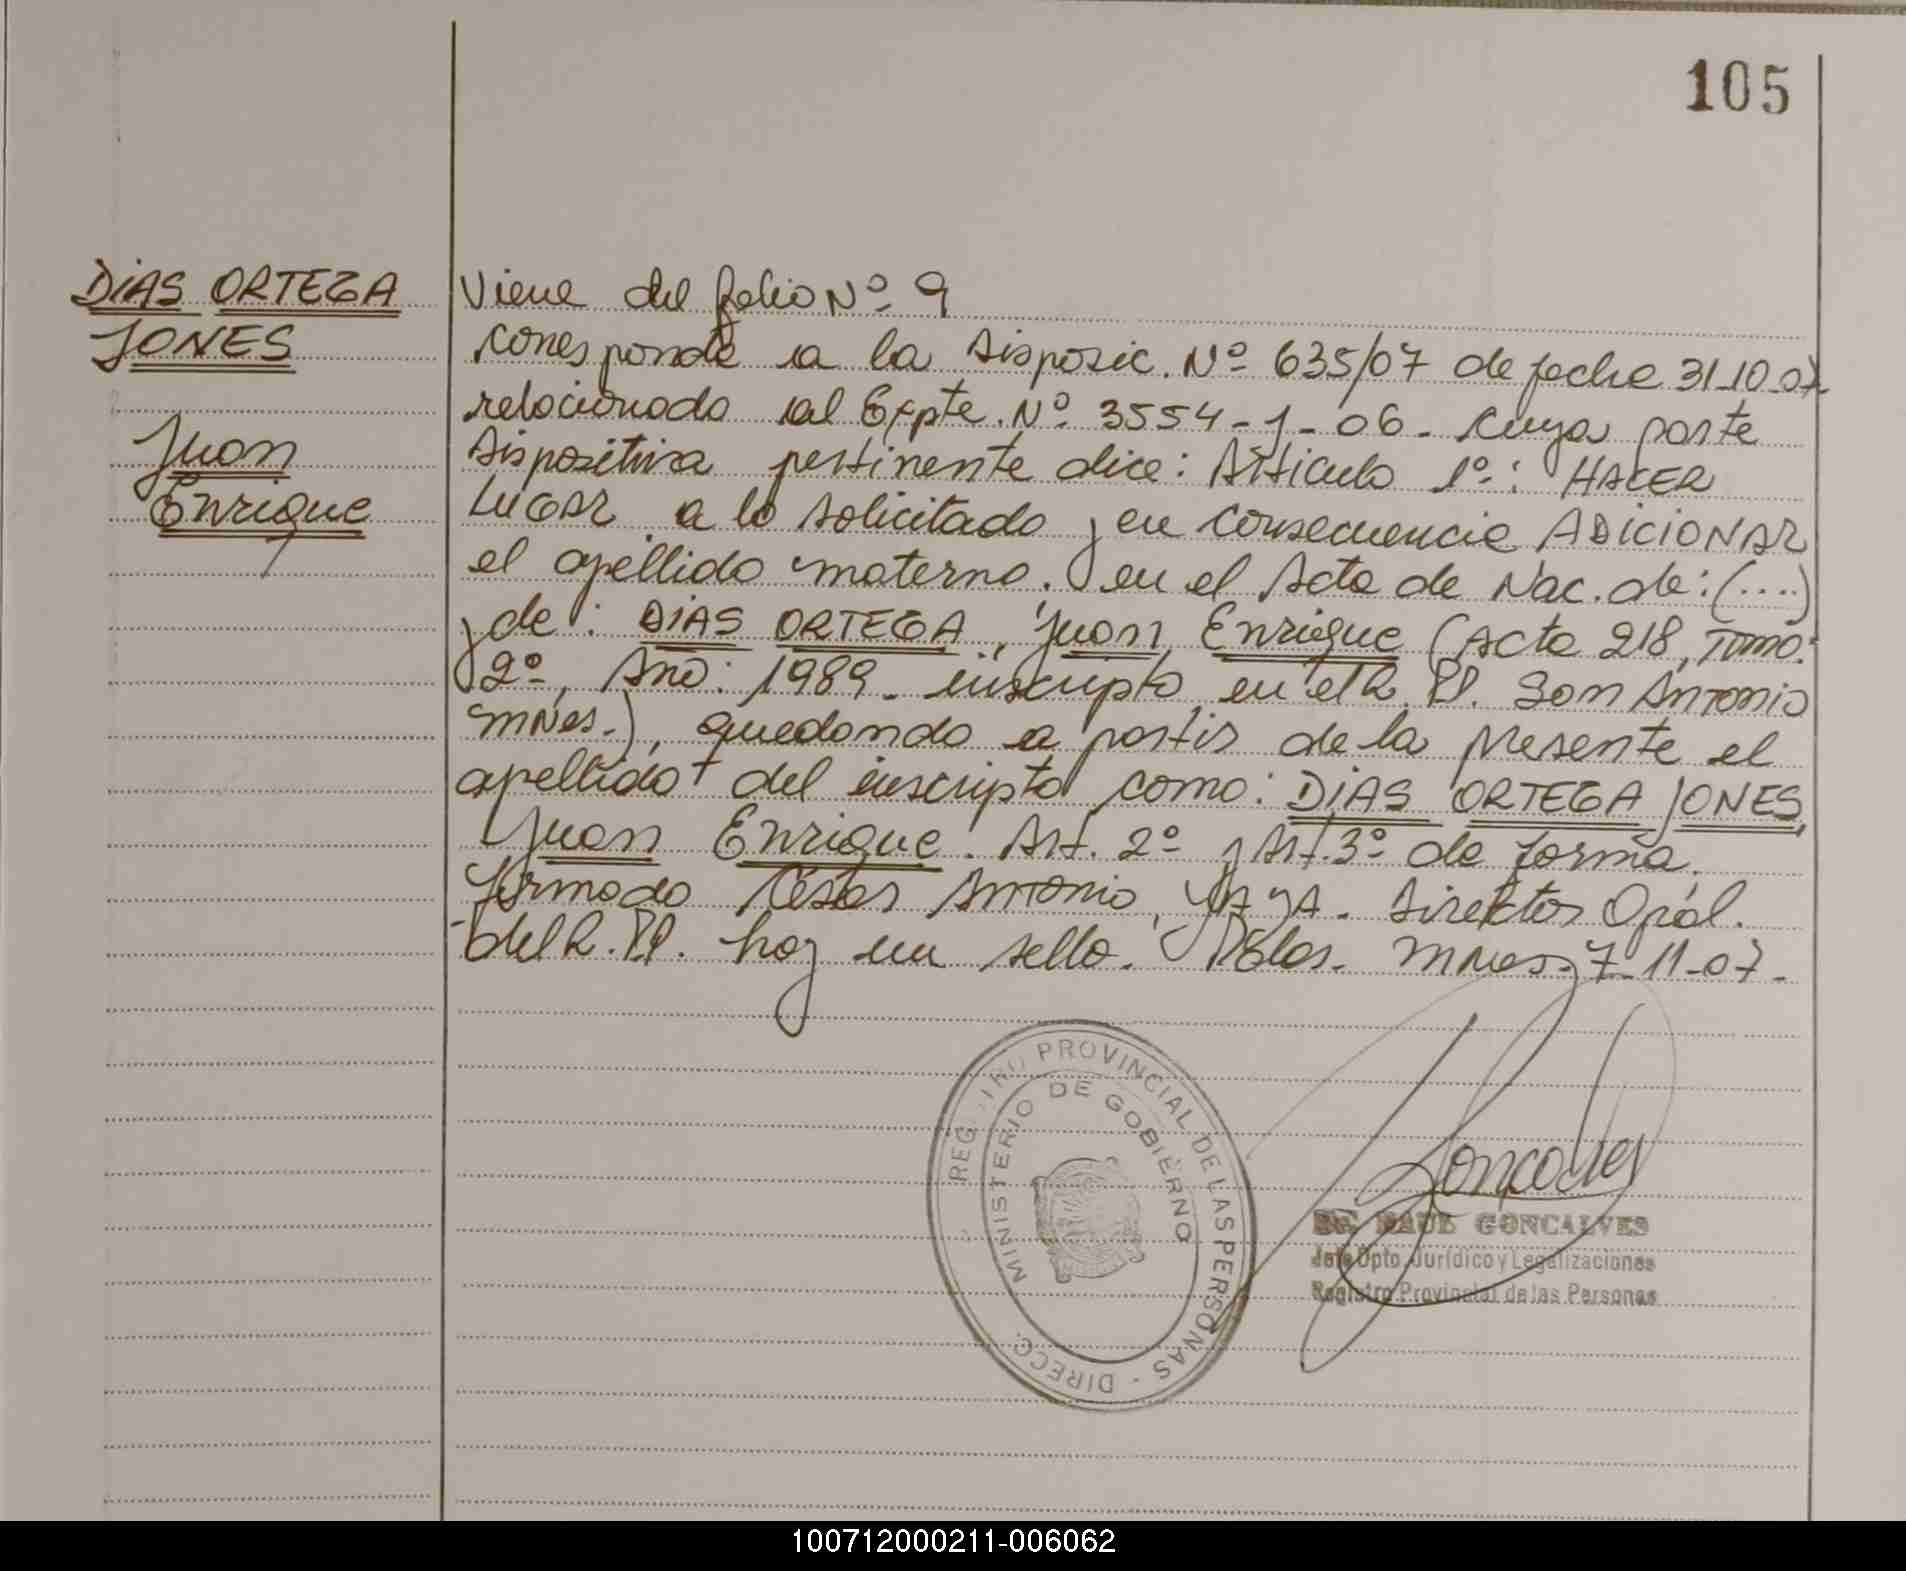 105
DIAS ORTEGA
JONES
Juan
Enrique
Viene del folio Nº 9
corresponde a la disposic. Nº 635/07 de fecha 31-10-07
relacionado al Expte. Nº 3554-1-06- cuya parte
dispositiva pertinente dice: Artículo 1º: HACER
LUGAR a lo solicitado y en consecuencia ADICIONAR
el apellido materno. en el Acta de Nac. de: (....)
y de: DIAS ORTEGA, Juan Enrique (Acta 218, Tomo:
2º, Año: 1989- inscripto en el R.P. San Antonio
Mnes.), quedando a partir de la presente el
apellido del inscripto como: DIAS ORTEGA JONES,
Juan Enrique. Art. 2º y Art. 3º de forma.
Firmado César Antonio, YAYA. Director Gral.
del R.P. hay un sello. Pdas. Mnes. 7-11-07-
REGISTRO PROVINCIAL DE LAS PERSONAS - DIRECC.
MINISTERIO DE GOBIERNO
RAUL GONCALVES
Jefe Dpto. Jurídico y Legalizaciones
Registro Provincial de las Personas
100712000211-006062